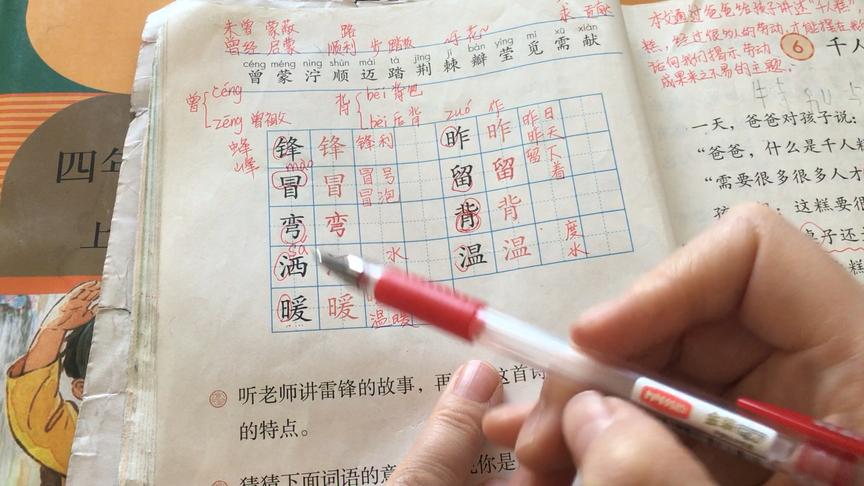 四年
上
未曾 蒙蔽 路
曾经 启蒙 顺利 步踏
céng méng nìng shùn mài tà jīng jí bàn yíng mì xū xiàn
曾 蒙 泞 顺 迈 踏 荆 棘 瓣 莹 觅 需 献
曾 céng
zēng 曾祖父
背 bēi 背包
bèi 后背
蜂
峰
锋 锋 锋利
mào
冒 冒 冒号
冒泡
弯 弯
sǎ
洒 水
暖 暖
温暖
zuó 作
昨 昨 昨日
昨天
留 留 留下
着
背 背
温 温 度
水
听老师讲雷锋的故事，再 这首诗
的特点。
猜猜下面词语的意 你是
本文通过爸爸给孩子讲述“千人糕”
糕，经过很多人的劳动，才能摆在
向我们揭示劳动
成果来之不易的主题。
6 千人
一天，爸爸对孩子说：
“爸爸，什么是千人糕
“需要很多很多人才
孩 ：这糕要很
桌子还
糕